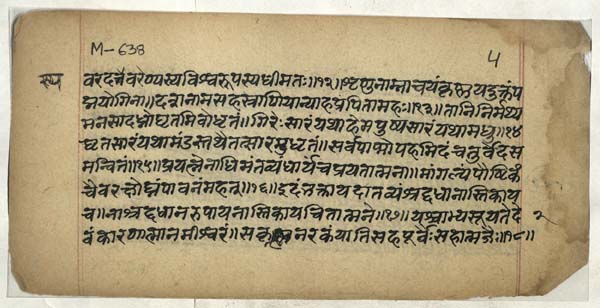 M-638
४
वरदस्य वरेण्यस्य विश्वरूपस्य धीमतः॥१२॥शृणु नाम्नाचयं कृष्ण यदुक्तं प
द्मयोनिना॥दशनामसहस्राणि यान्याह प्रपितामहः॥१३॥तानि निर्मथ्य
मनसादध्नोघृतमिवोद्धृतं॥गिरेः सारं यथाहेमपुष्पसारं यथा मधु॥१४
घृतसारं यथामंडस्तथैतत्सारमुद्धृतं॥सर्वपाप्मापहमिदं चतुर्वेदस
मन्वितं॥१५॥प्रयत्नेनाधिगंतव्यं धार्यंचप्रयतात्मना॥मांगल्यंपौष्टिकं
चैव रक्षोघ्नंपावनंमहत्॥१६॥इदंभक्तायदातव्यं श्रद्दधानास्तिकाय
च॥नाश्रद्दधानरुपायनास्तिकाय॥१७॥यश्चाभ्यसूयतेदे २
वं कारणात्मानमीश्वरं॥सकृष्णनरकंयातिसहपूर्वैः सहात्मजैः॥१८॥